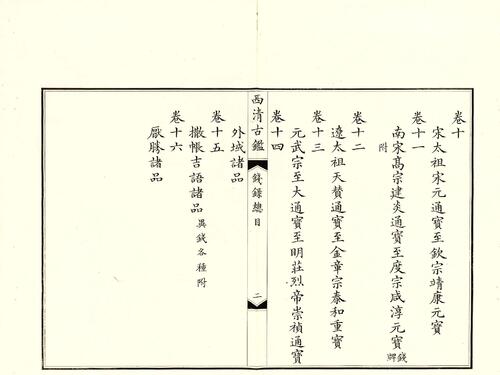 卷十
宋太祖宋元通寶至欽宗靖康元寶
卷十一
南宋高宗建炎通寶至度宗咸淳元寶錢牌
附
卷十二
遼太祖天贊通寶至金章宗泰和重寶
卷十三
元武宗至大通寶至明莊烈帝崇禎通寶
卷十四
西清古鑑
錢錄總目
二
外域諸品
卷十五
撒帳吉語諸品異錢各種附
卷十六
厭勝諸品